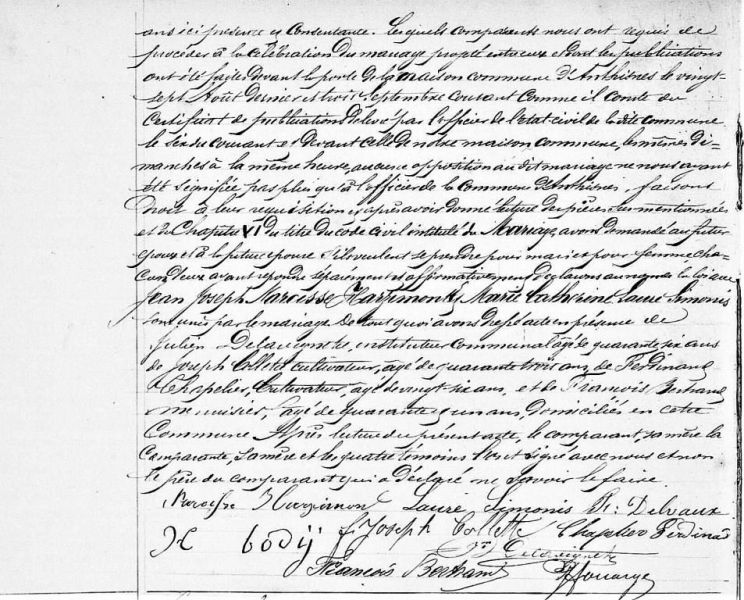 ans ici présente et consentante. Lesquels comparants nous ont requis de
procéder à la célébration du mariage projeté entre eux et dont les publications
ont été faites devant la porte de la maison commune d'Anthisnes le vingt-
sept Août dernier et trois Septembre courant comme il conste du
Certificat de publications délivré par l'officier de l'état civil de la dite commune
le six du courant et devant celle de notre maison commune, les mêmes di-
manches à la même heure, aucune opposition au dit mariage ne nous ayant
été signifiée pas plus qu'à l'officier de la Commune d'Anthisnes, faisons
droit à leur réquisition et après avoir donné lecture des pièces ci mentionnées
et du Chapitre VI du titre du code civil intitulé du Mariage, avons demandé au futur
époux et à la future épouse s'ils veulent se prendre pour mari et pour femme cha-
cun d'eux ayant répondu séparément et affirmativement déclarons au nom de la loi que
Jean Joseph Narcisse Harzimont et Marie Catherine Laure Simonis
sont unis par le mariage. De tout quoi avons dressé acte en présence de
Julien Delavignette, instituteur communal âgé de quarante six ans
de Joseph Collette cultivateur, âgé de quarante trois ans, de Ferdinand
Chapelier, Cultivateur, âgé de vingt six ans, et de François Bertrand
menuisier, âgé de quarante un ans, domiciliés en cette
Commune. Après lecture du présent acte, le comparant, sa mère la
Comparante, sa mère et les quatre témoins l'ont signé avec nous et non
le père du comparant qui a déclaré ne savoir le faire.
Narcisse Harzimont Laure Simonis Delvaux
H body J. Joseph Collette Chapelier Ferdinand
François Bertrand